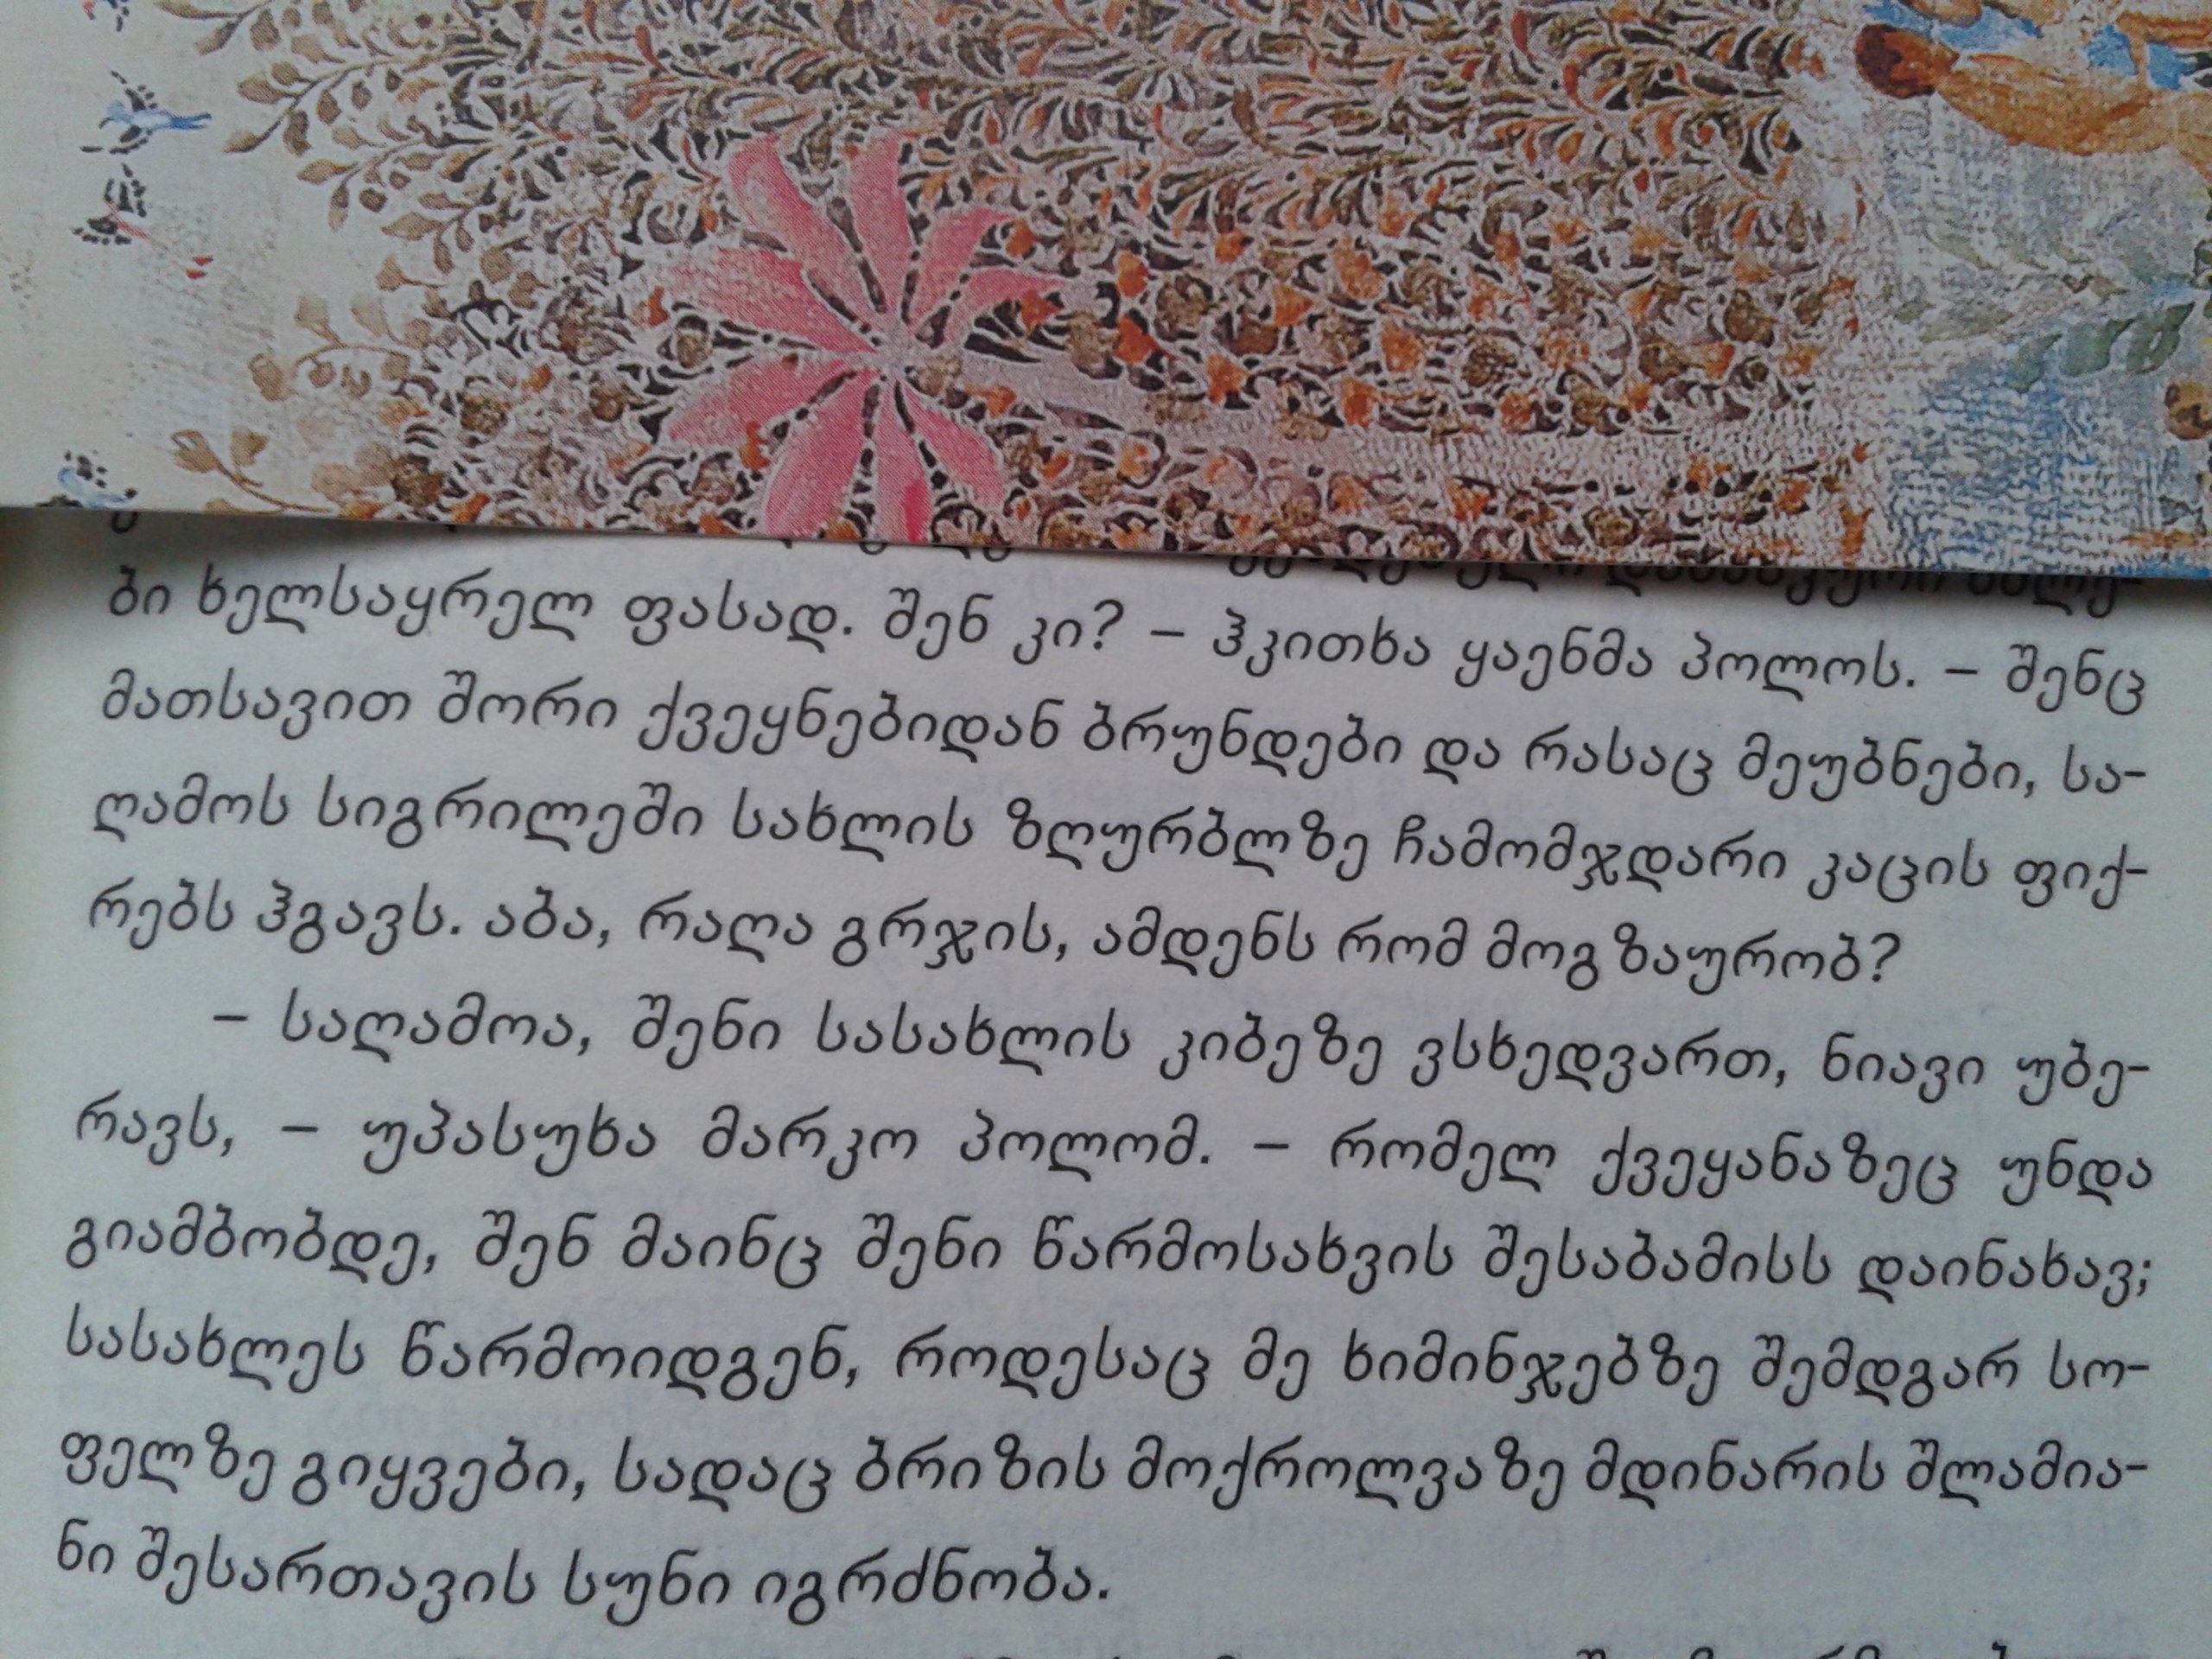 ბი ხელსაყრელ ფასად. შენ კი? – ჰკითხა ყაენმა პოლოს. – შენც
მათსავით შორი ქვეყნებიდან ბრუნდები და რასაც მეუბნები, სა-
ღამოს სიგრილეში სახლის ზღურბლზე ჩამომჯდარი კაცის ფიქ-
რებს ჰგავს. აბა, რაღა გრჯის, ამდენს რომ მოგზაურობ?
– საღამოა, შენი სასახლის კიბეზე ვსხედვართ, ნიავი უბე-
რავს, – უპასუხა მარკო პოლომ. – რომელ ქვეყანაზეც უნდა
გიამბობდე, შენ მაინც შენი წარმოსახვის შესაბამისს დაინახავ;
სასახლეს წარმოიდგენ, როდესაც მე ხიმინჯებზე შემდგარ სო-
ფელზე გიყვები, სადაც ბრიზის მოქროლვაზე მდინარის შლამია-
ნი შესართავის სუნი იგრძნობა.